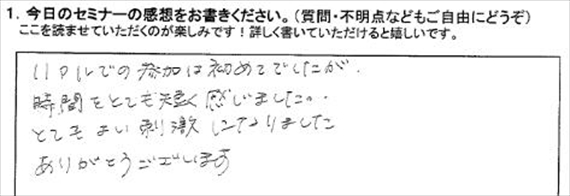 1. 今日のセミナーの感想をお書きください。(質問・不明点などもご自由にどうぞ)
ここを読ませていただくのが楽しみです!詳しく書いていただけると嬉しいです。
リアルでの参加は初めてでしたが、
時間をとても短く感じました。
とてもよい刺激になりました
ありがとうございます